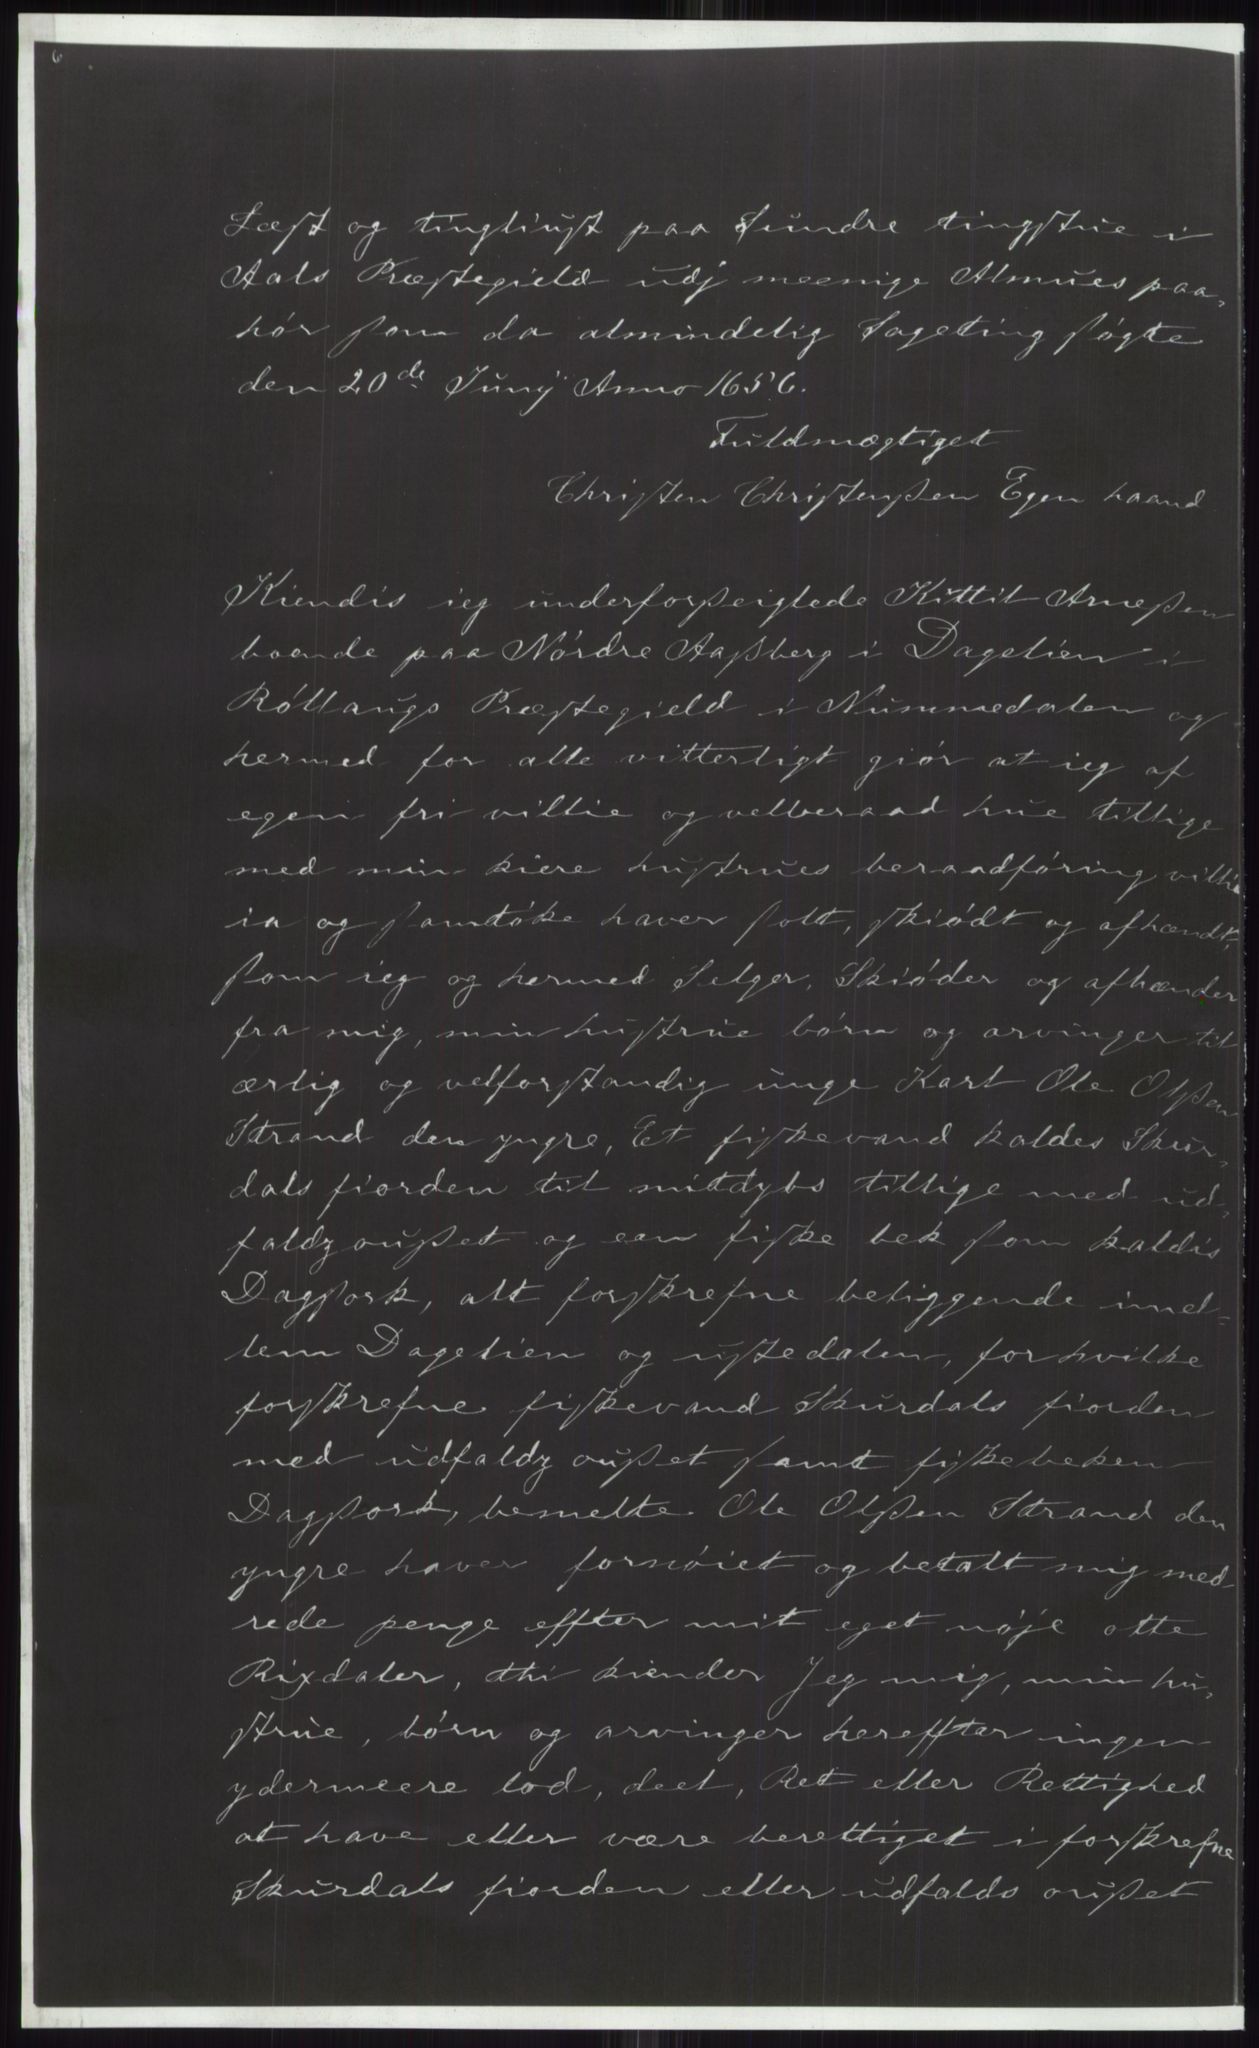 6
Læst og tingliust paa Sundre tingstue i
Aals Præstegield udj meenige Almues paa-
hør som da almindelig Sageting søgte
den 20de Junÿ Anno 1656.
Fuldmægtiget
Christen Christensen Egen haand
Kiendis ieg underforseiglede Kittil Arnessen
boende paa Nórdre Aassberg i Dagelien i
Róllaugs Præstegield i Nummedalen og
hermed for alle vitterligt giór at ieg af
egen fri villie og velberaad hue tillige
med min kiere hustrues beraadføring villie
ia og samtóke haver solt, skiødt og afhændt,
som ieg og hermed Selger, Skiøder og afhænder
fra mig, min hustrue børn og arvinger til
ærlig og velforstandig unge Karl Ole Olssen
Strand den yngre, Eet fiskevand kaldes Skur-
dals fiorden til mittdybs tillige med ud-
faldz ousset og een fiske bek som kaldis
Dagsork, alt forskrefne beliggende imel-
lem Dagelien og ustedalen, for hvilke
forskrefne fiskevand Skurdals fiorden
med udfaldz ousset samt fiskebeken
Dagsork, bemelte Ole Olssen Strand den
yngre haver fornøiet og betalt mig med
rede penge effter mit eget nøje otte
Rixdaler, thi kiender Jeg mig, min hu-
strue, bórn og arvinger hereffter ingen
ydermeere lod, deel, Ret eller Rettighed
at have eller være berettiget i forskrefne
Skurdals fiorden eller udfalds ousset